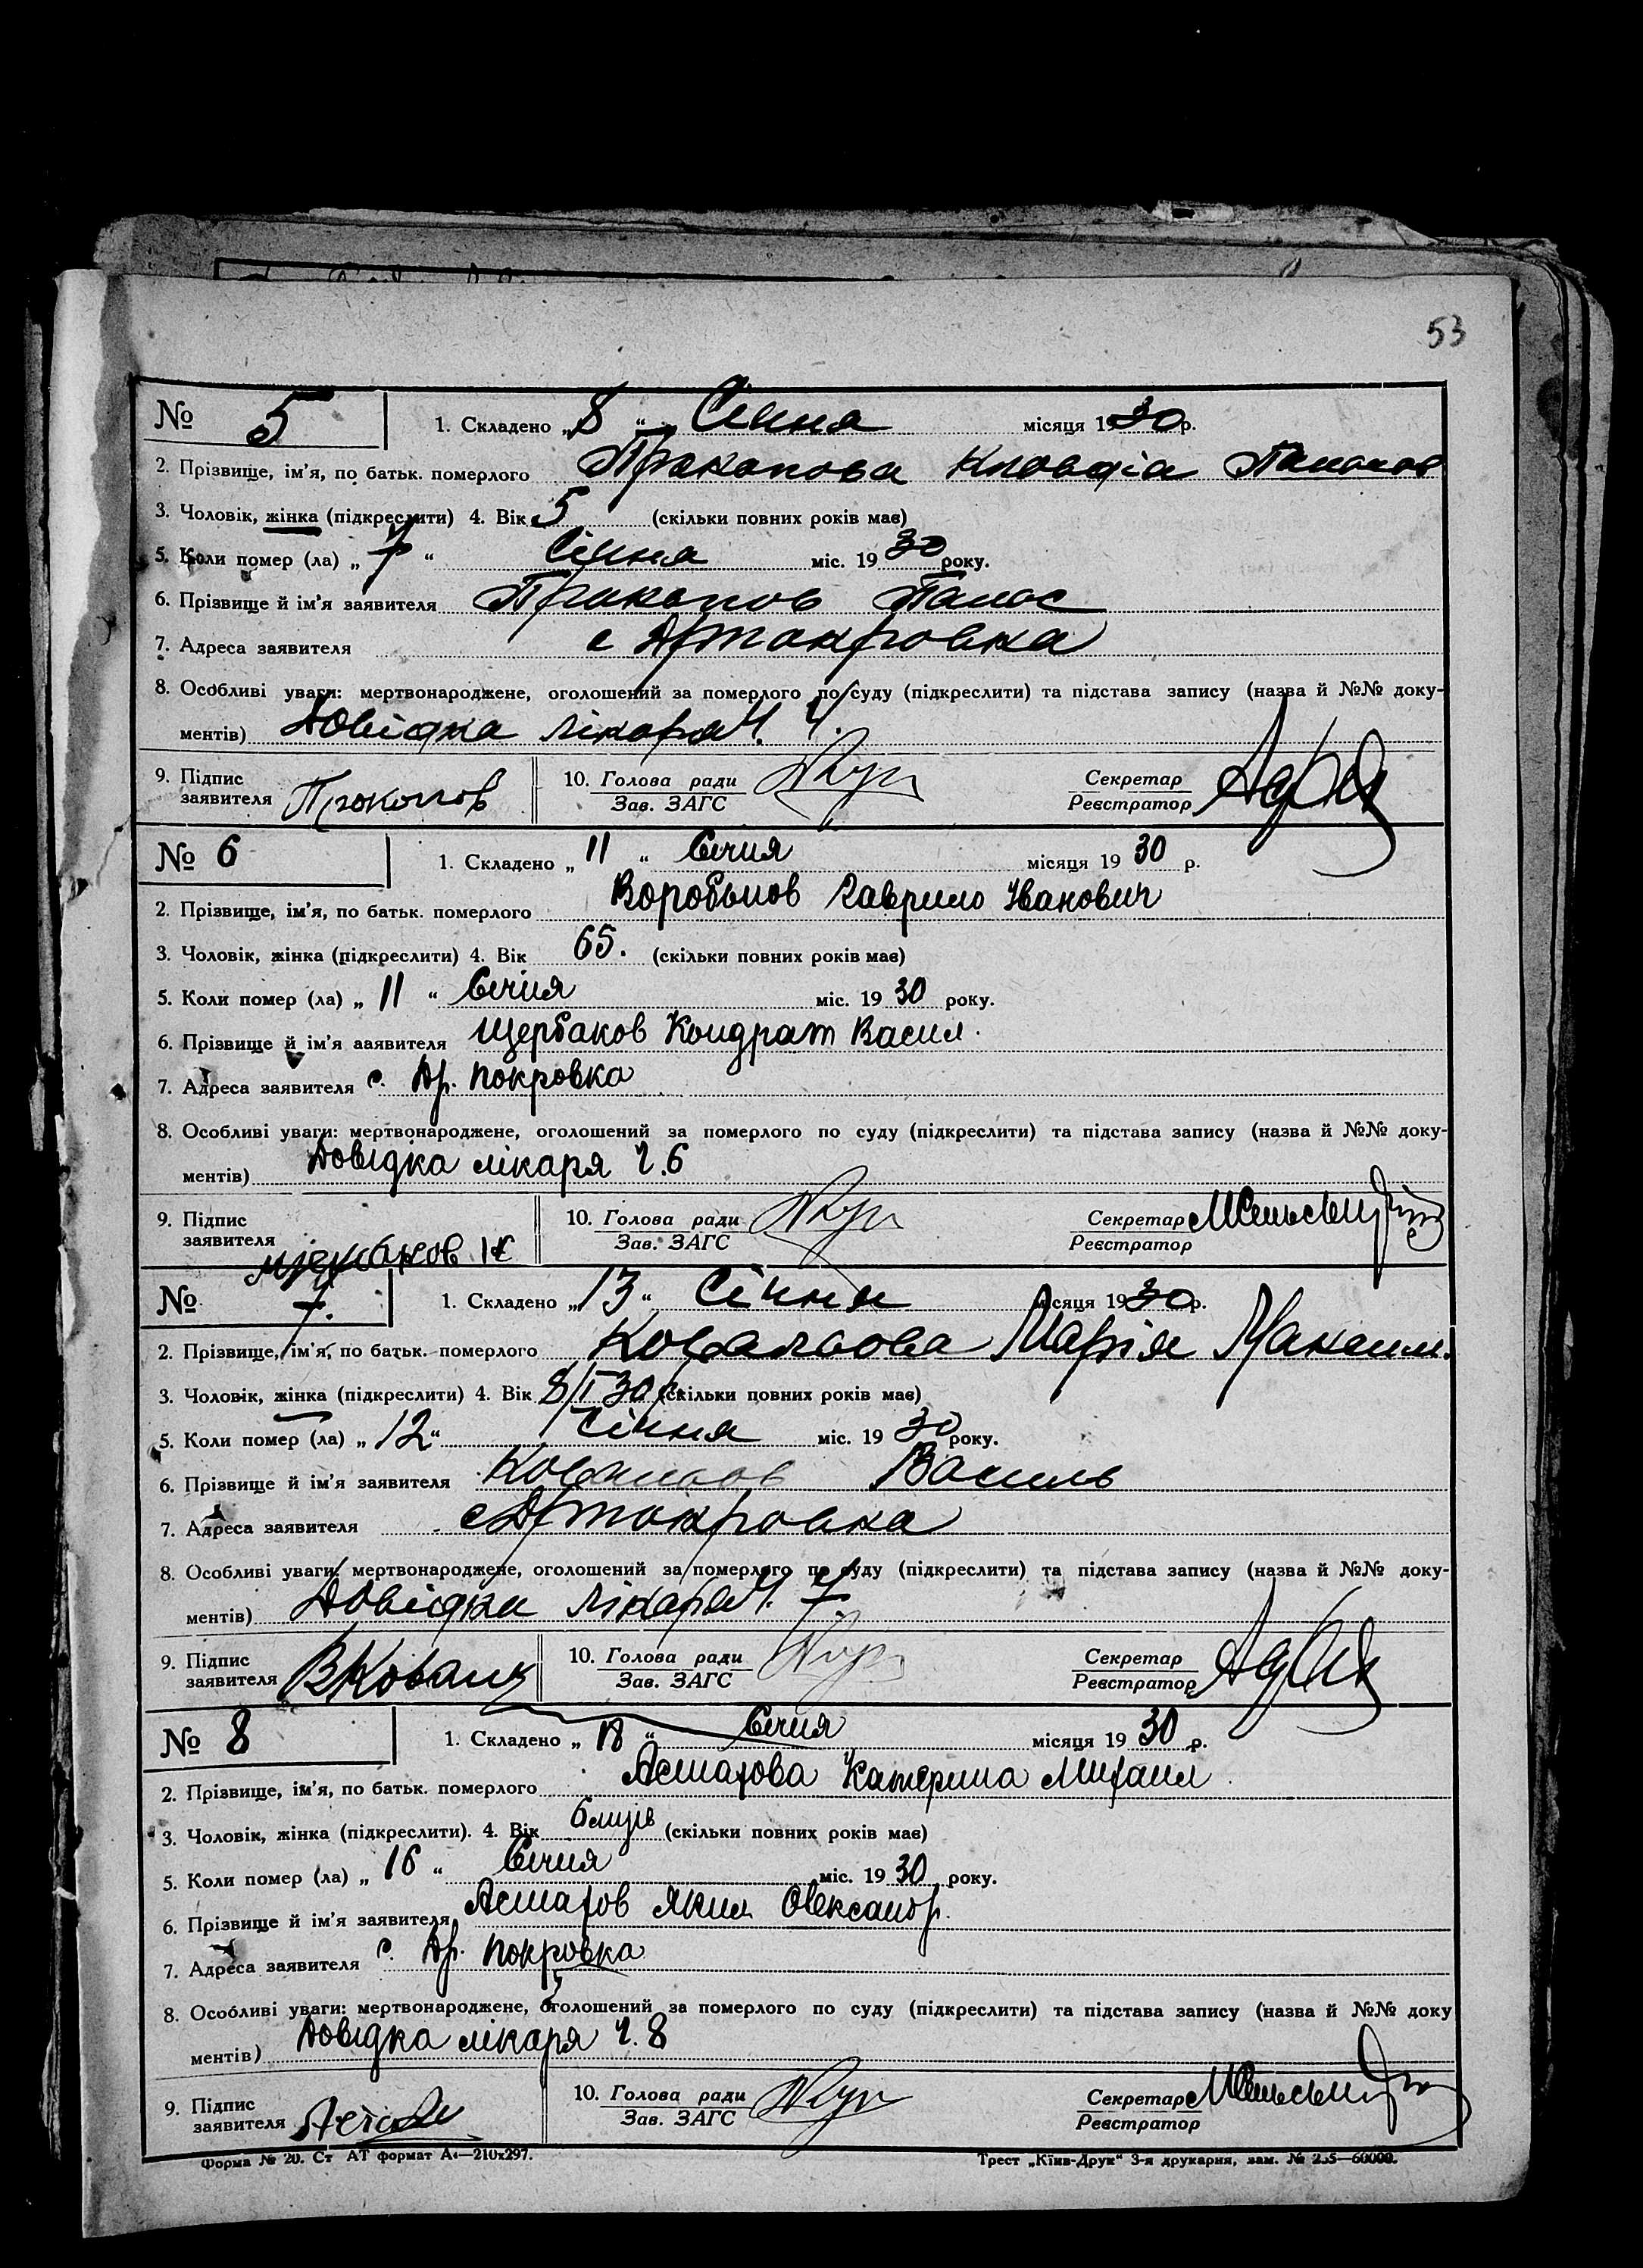 53
№ 5 1. Складено „8“ Січня місяця 1930 р.
2. Прізвище, ім'я, по батьк. померлого Прокопова Кловдіа Панасов
3. Чоловік, жінка (підкреслити) 4. Вік 5 (скільки повних років має)
5. Коли помер (ла) „7“ Січня міс. 1930 року.
6. Прізвище й ім'я заявителя Прокопов Панас
7. Адреса заявителя с
8. Особливі уваги: мертвонароджене, оголошений за померлого по суду (підкреслити) та підстава запису (назва й №№ доку-
ментів) Довідка лікаря Ч.
9. Підпис заявителя Прокопов 10. Голова ради Зав. ЗАГС Секретар Реєстратор
№ 6 1. Складено „11“ Січня місяця 1930 р.
2. Прізвище, ім'я, по батьк. померлого Воробьйов Гаврило Іванович
3. Чоловік, жінка (підкреслити) 4. Вік 65. (скільки повних років має)
5. Коли помер (ла) „11“ Січня міс. 1930 року.
6. Прізвище й ім'я заявителя Щербаков Кондрат Васил.
7. Адреса заявителя с. Др. Покровка
8. Особливі уваги: мертвонароджене, оголошений за померлого по суду (підкреслити) та підстава запису (назва й №№ доку-
ментів) Довідка лікаря Ч.6
9. Підпис заявителя 10. Голова ради Зав. ЗАГС Секретар Реєстратор
№ 7. 1. Складено „13“ Січня місяця 1930 р.
2. Прізвище, ім'я, по батьк. померлого Ковальова Марія Максим.
3. Чоловік, жінка (підкреслити) 4. Вік 8/I 30 (скільки повних років має)
5. Коли помер (ла) „12“ Січня міс. 1930 року.
6. Прізвище й ім'я заявителя Ковальов Василь
7. Адреса заявителя с
8. Особливі уваги: мертвонароджене, оголошений за померлого по суду (підкреслити) та підстава запису (назва й №№ доку-
ментів) Довідка лікаря Ч. 7
9. Підпис заявителя 10. Голова ради Зав. ЗАГС Секретар Реєстратор
№ 8 1. Складено „18“ Січня місяця 1930 р.
2. Прізвище, ім'я, по батьк. померлого Асмахова Катерина Михаил
3. Чоловік, жінка (підкреслити). 4. Вік (скільки повних років має)
5. Коли помер (ла) „16“ Січня міс. 1930 року.
6. Прізвище й ім'я заявителя Асмахов Яким Олександр.
7. Адреса заявителя с. Др. Покровка
8. Особливі уваги: мертвонароджене, оголошений за померлого по суду (підкреслити) та підстава запису (назва й №№ доку
ментів) Довідка лікаря Ч. 8
9. Підпис заявителя 10. Голова ради Зав. ЗАГС Секретар Реєстратор
Форма № 20. Ст АТ формат А4—210х297. Трест „Київ-Друк“ 3-я друкарня, зам. № 255—60000.